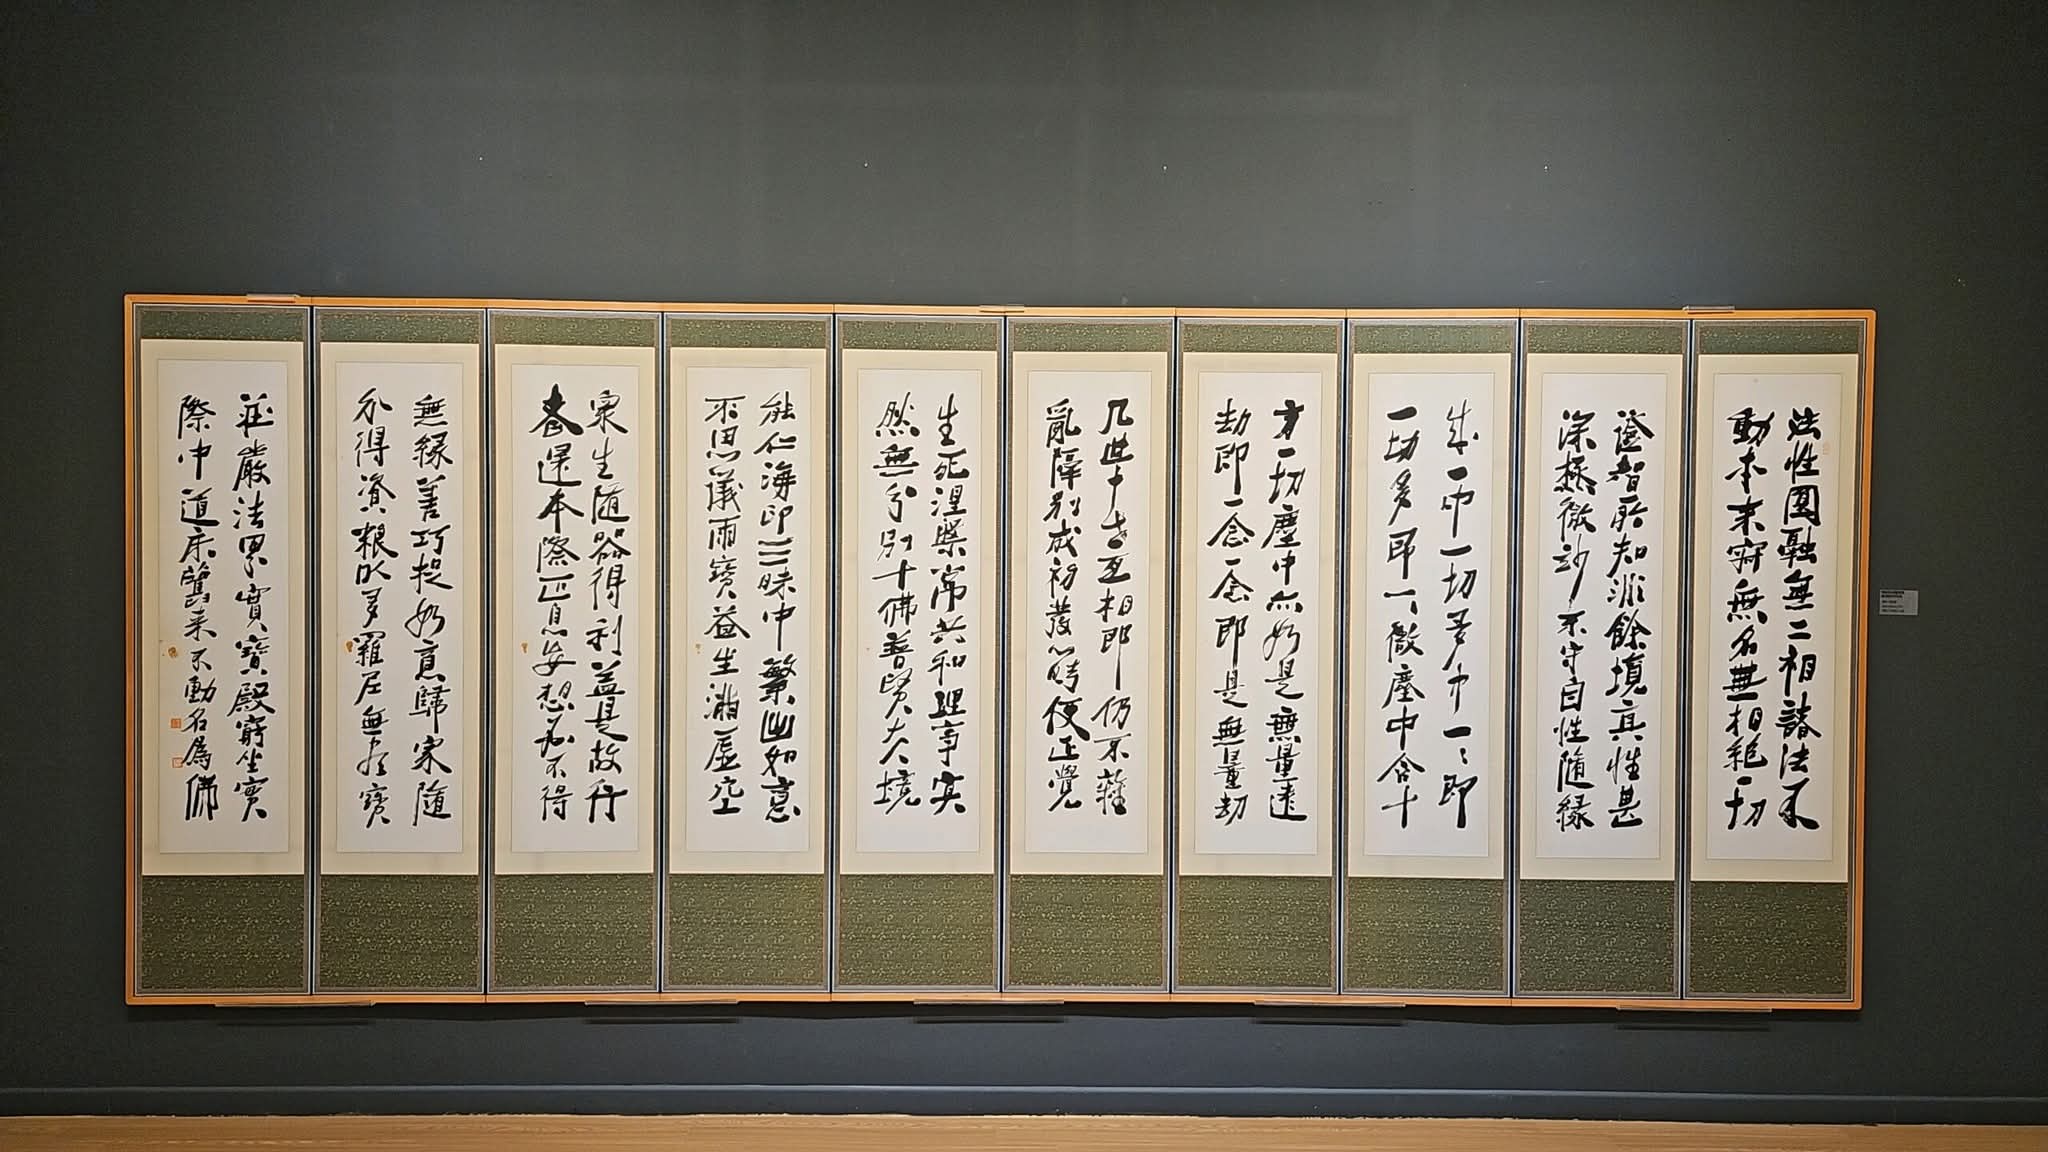 法性圓融無二相諸法不
動本來寂無名無相絶一切
證智所知非餘境真性甚
深極微妙不守自性隨緣
成一中一切多中一々即
一切多即一々微塵中含十
方一切塵中亦如是無量遠
劫即一念一念即是無量劫
九世十世互相即仍不雜
亂隔別成初發心時便正覺
生死涅槃常共和理事冥
然無分別十佛普賢大人境
能仁海印三昧中繁出如意
不思議雨寶益生滿虛空
衆生隨器得利益是故行
者還本際叵息妄想必不得
無緣善巧捉如意歸家隨
分得資糧以多羅尼無盡寶
莊嚴法界實寶殿窮坐實
際中道床舊來不動名為佛